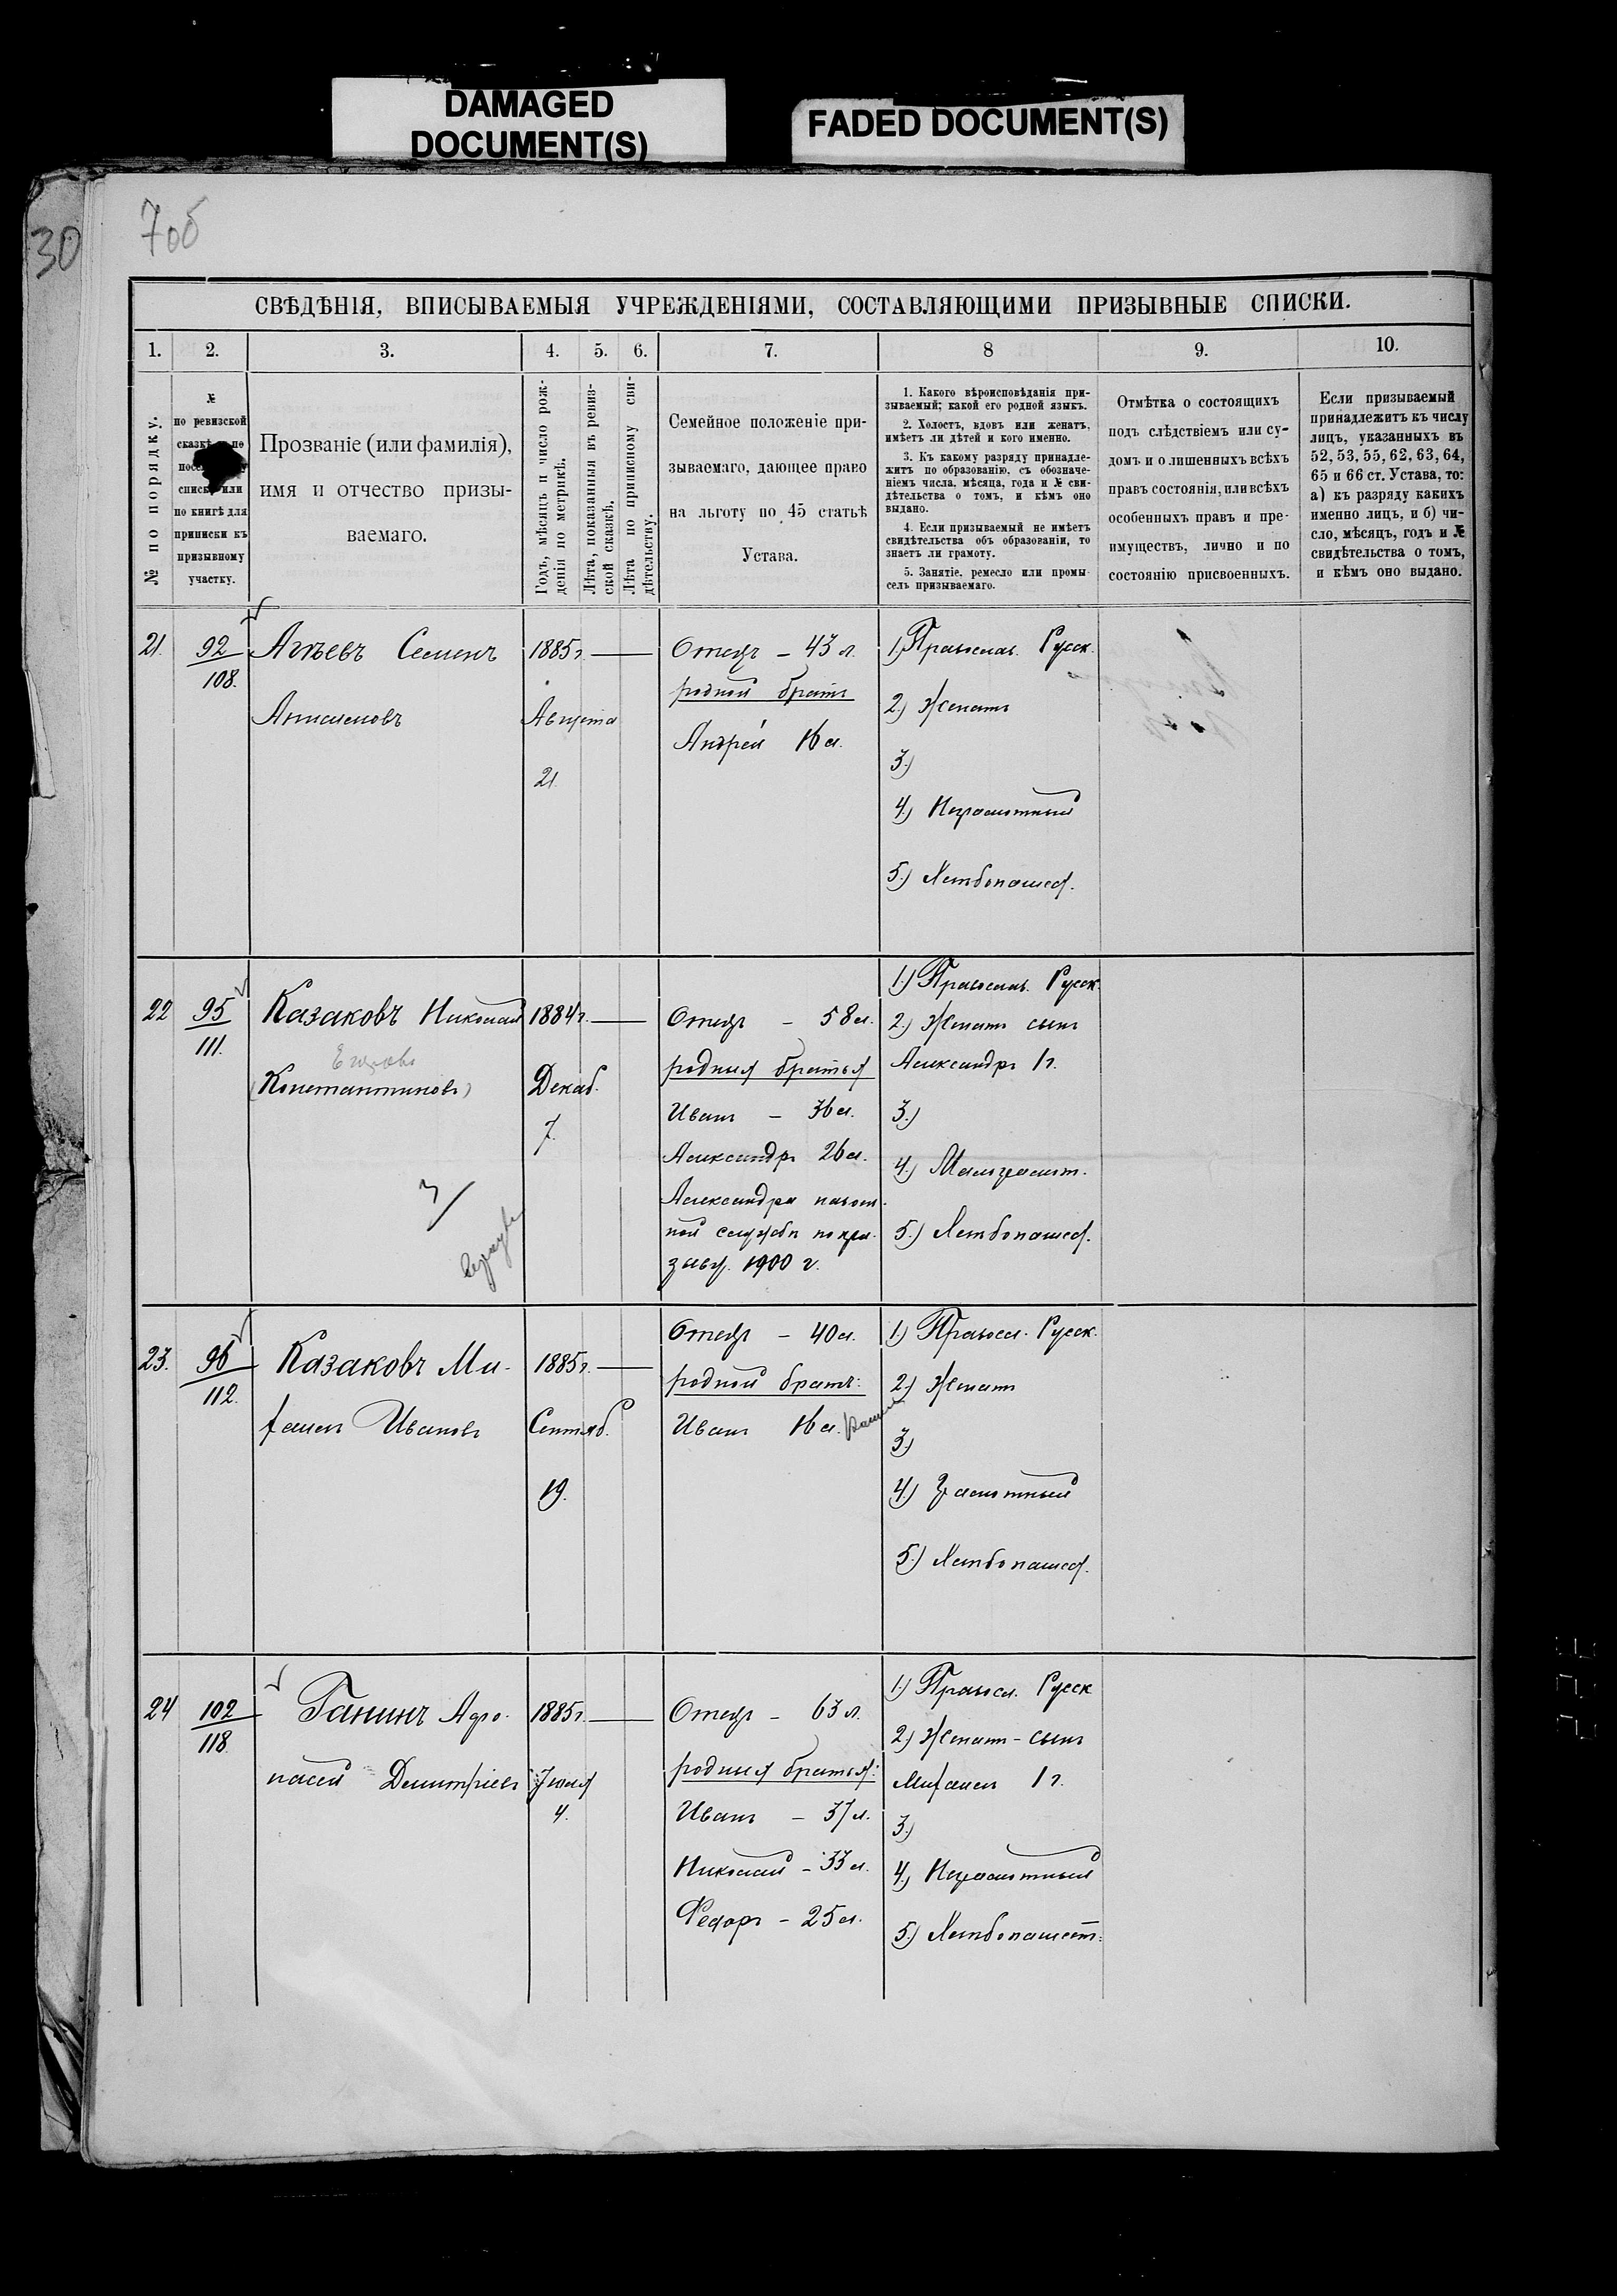 DAMAGED
DOCUMENT(S)
FADED DOCUMENT(S)
30
7об
СВѢДѢНІЯ, ВПИСЫВАЕМЫЯ УЧРЕЖДЕНІЯМИ, СОСТАВЛЯЮЩИМИ ПРИЗЫВНЫЕ СПИСКИ.
1.
2.
3.
4.
5.
6.
7.
8
9.
10.
№ по порядку.
№
по ревизской
сказкѣ по
списку или
по книгѣ для
приписки къ
призывному
участку.
Прозваніе (или фамилія),
имя и отчество призы-
ваемаго.
Годъ, мѣсяцъ и число рож-
денія по метрикѣ.
Лѣта, показанныя въ ревиз-
ской сказкѣ.
Лѣта по приписному сви-
дѣтельству.
Семейное положеніе при-
зываемаго, дающее право
на льготу по 45 статьѣ
Устава.
1. Какого вѣроисповѣданія при-
зываемый; какой его родной языкъ.
2. Холостъ, вдовъ или женатъ,
имѣетъ ли дѣтей и кого именно.
3. Къ какому разряду принадле-
житъ по образованію, съ обозначе-
ніемъ числа, мѣсяца, года и № сви-
дѣтельства о томъ, и кѣмъ оно
выдано.
4. Если призываемый не имѣетъ
свидѣтельства объ образованіи, то
знаетъ ли грамоту.
5. Занятіе, ремесло или промы-
селъ призываемаго.
Отмѣтка о состоящихъ
подъ слѣдствіемъ или су-
домъ и о лишенныхъ всѣхъ
правъ состоянія, или всѣхъ
особенныхъ правъ и пре-
имуществъ, лично и по
состоянію присвоенныхъ.
Если призываемый
принадлежитъ къ числу
лицъ, указанныхъ въ
52, 53, 55, 62, 63, 64,
65 и 66 ст. Устава, то:
а) къ разряду какихъ
именно лицъ, и б) чи-
сло, мѣсяцъ, годъ и №
свидѣтельства о томъ,
и кѣмъ оно выдано.
21.
92
108.
Агѣевъ Семенъ
1885 г.
Августа
21
Отецъ – 43 л.
родной братъ
Андрей 16 л.
1) Православ. Русск.
2.) Женатъ
3.)
4.) Неграмотный
5.) Хлѣбопашец.
22
95
111.
Казаковъ Николай
Егоровъ
(Константиновъ)
1884 г.
Декаб.
7.
Отецъ – 58 л.
родныя братья
Иванъ – 36 л.
Александръ 26 л.
Александръ на вои
ной службѣ по при
зыву. 1900 г.
1.) Православ. Русск.
2.) Женатъ сынъ
Александръ 1 г.
3.)
4.) Малограмот.
5.) Хлѣбопашец.
23.
96
112.
Казаковъ Ми-
хаилъ Ивановъ
1885 г.
Сентяб.
19.
Отецъ – 40 л.
родной братъ:
Иванъ 16 л.
1.) Правосл. Русск.
2.) Женатъ
3.)
4.) Грамотный
5.) Хлѣбопашец.
24
102
118.
Ганинъ Афо-
насей Дмитріевъ
1885 г.
Іюля
4.
Отецъ – 63 л.
родныя братья:
Иванъ – 37 л.
Николай – 33 л.
Федоръ – 25 л.
1.) Правосл. Русск
2.) Женатъ – сынъ
Михаилъ 1 г.
3.)
4.) Неграмотный
5.) Хлѣбопашест.